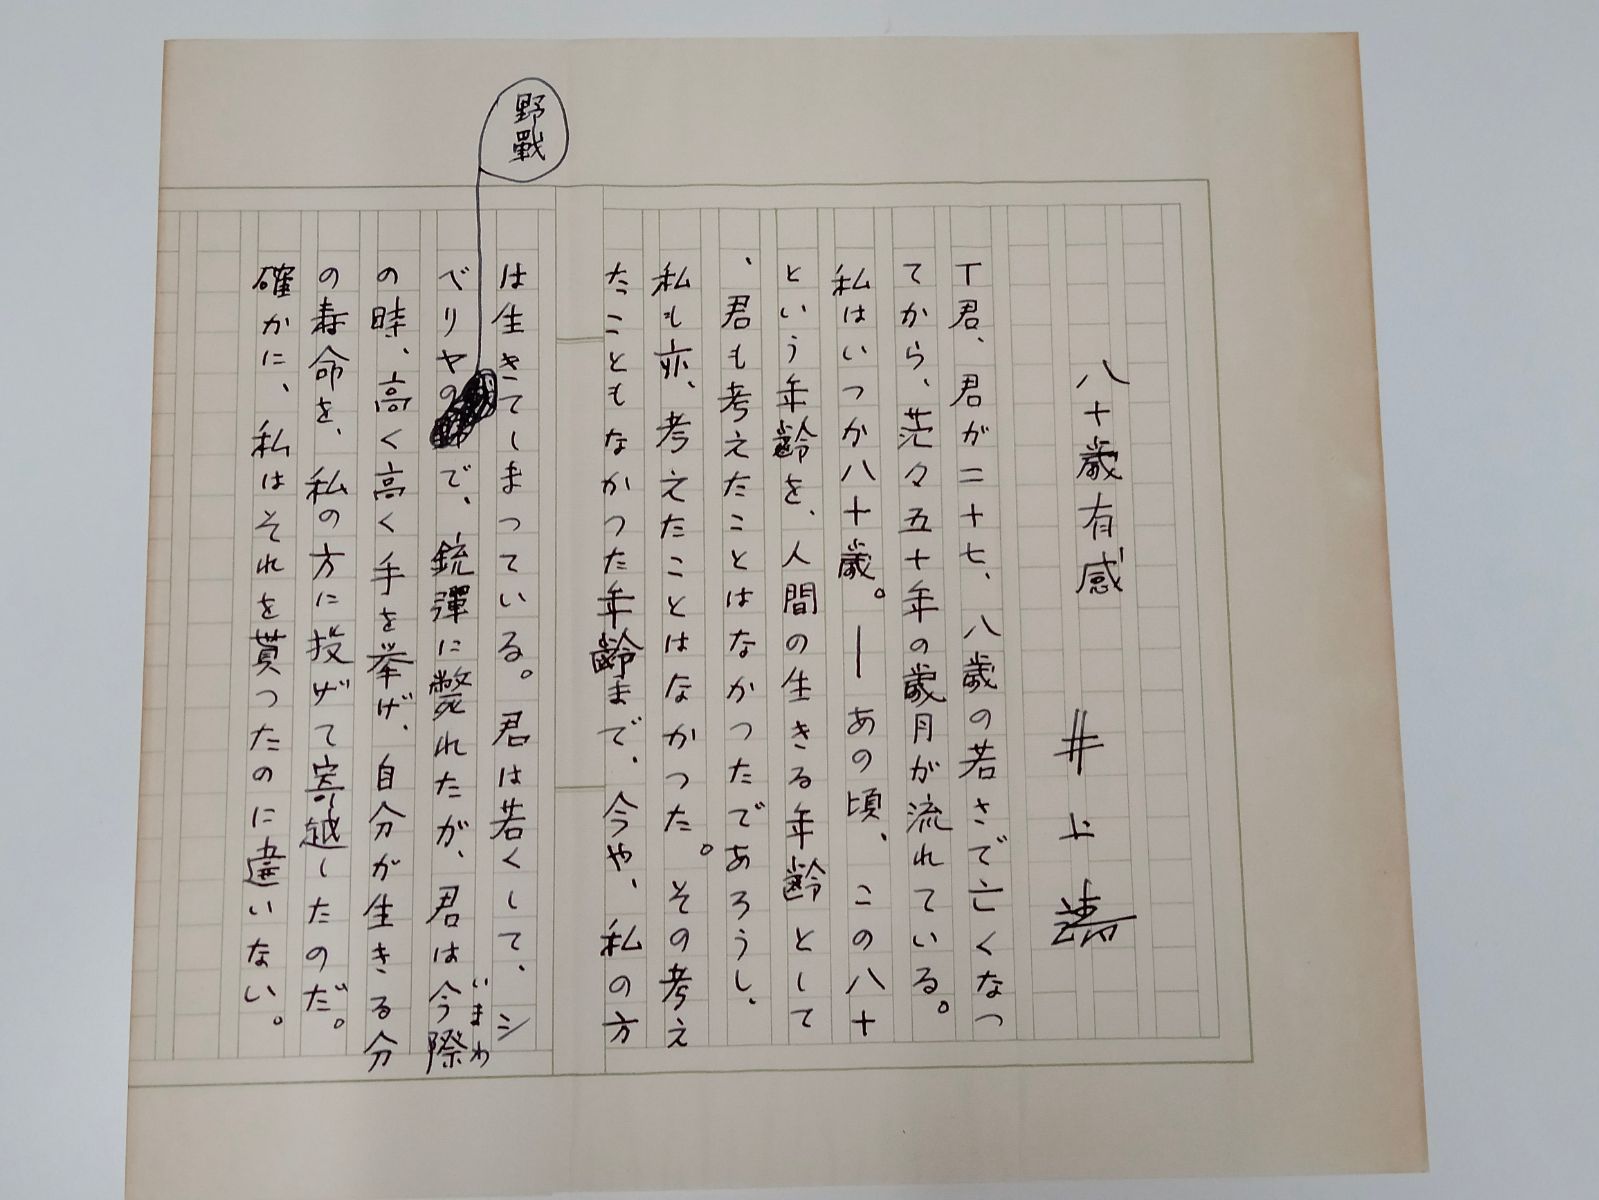 八十歳有感
井上靖
T君、君が二十七、八歳の若さで亡くなつ
てから、茫々五十年の歳月が流れている。
私はいつか八十歳。―あの頃、この八十
という年齢を、人間の生きる年齢として
、君も考えたことはなかったであろうし、
私も亦、考えたことはなかつた。その考え
たこともなかつた年齢まで、今や、私の方
は生きてしまつている。君は若くして、シ
野戰
ベリヤので、銃彈に斃れたが、君は今際
いまわ
の時、高く高く手を挙げ、自分が生きる分
の寿命を、私の方に投げて寄越したのだ。
確かに、私はそれを貰つたのに違いない。